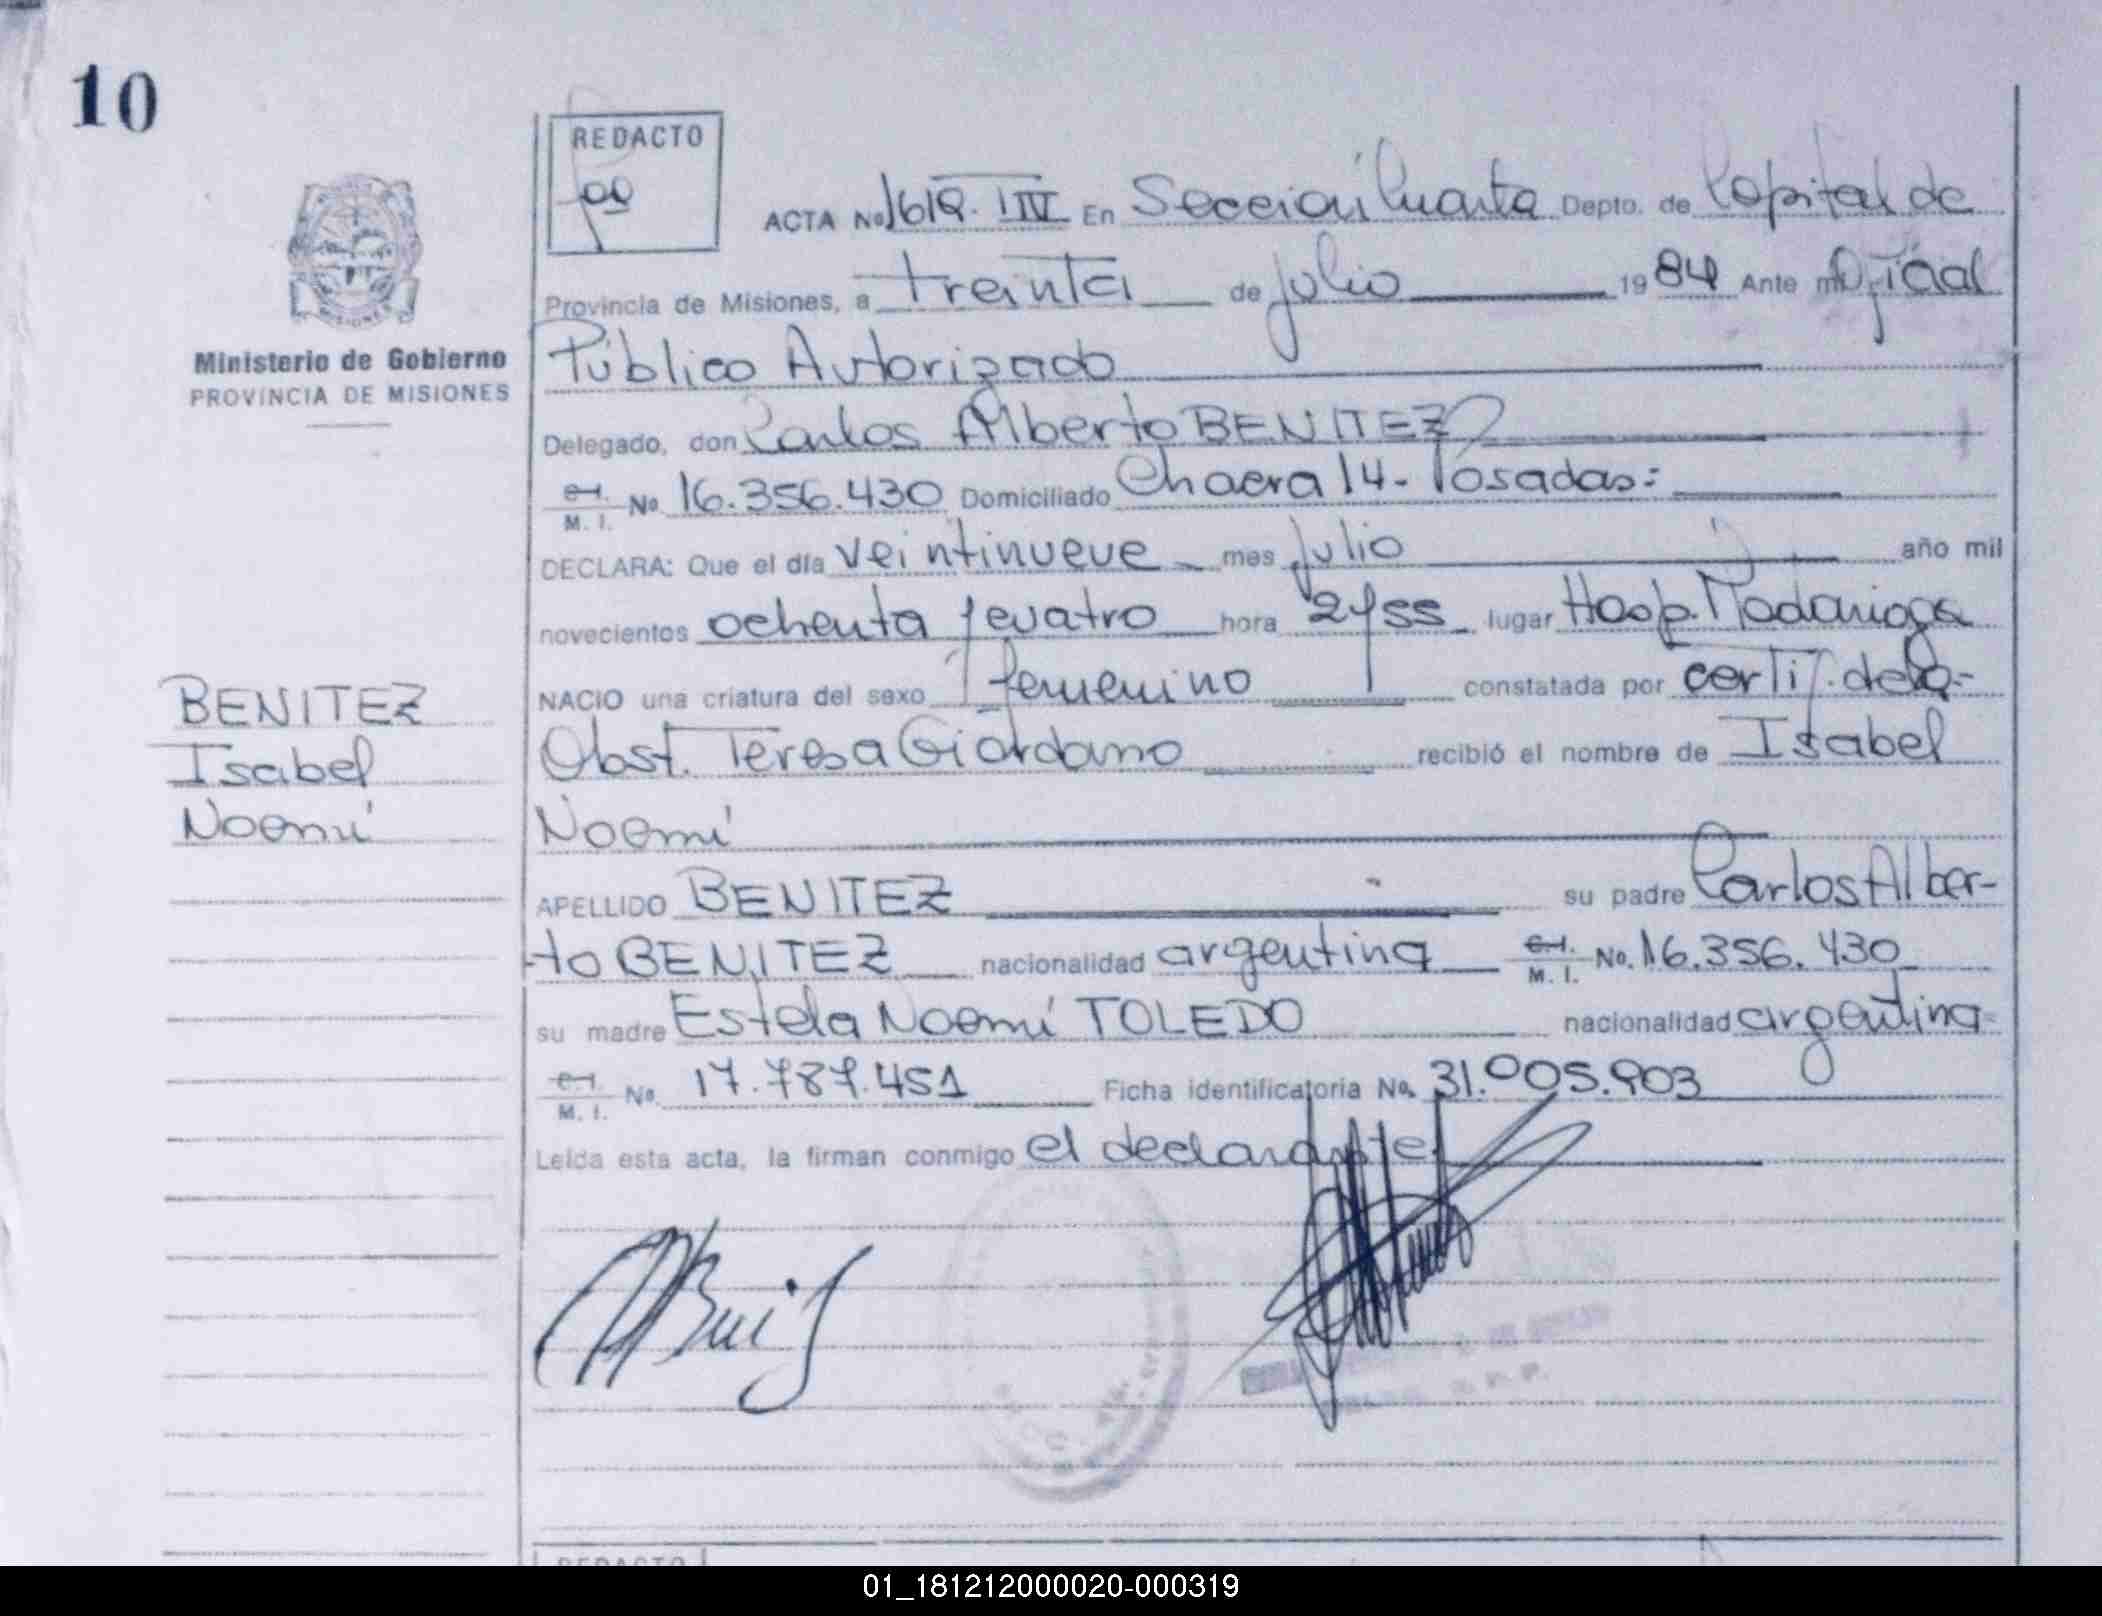 10
REDACTO
ACTA No 1619. IIIV En Sección Cuarta Depto. de Capital de
Provincia de Misiones, a treinta de julio 1984 Ante mí Oficial
MISIONES
Ministerio de Gobierno
PROVINCIA DE MISIONES
Público Autorizado
Delegado, don Carlos Alberto BENITEZ
C.I. M. I. No 16.356.430 Domiciliado Chacra 14- Posadas:
DECLARA: Que el día veintinueve mes julio año mil
novecientos ochenta y cuatro hora 2y55 lugar Hosp. Madariaga
NACIO una criatura del sexo femenino constatada por certif. de la-
Obst. Teresa Giordano recibió el nombre de Isabel
Noemí
BENITEZ
Isabel
Noemí
APELLIDO BENITEZ su padre Carlos Alber-
to BENITEZ nacionalidad argentina C.I. M. I. No. 16.356.430
su madre Estela Noemí TOLEDO nacionalidad argentina
C.I. M. I. No. 17.787.451 Ficha identificatoria No. 31.005.903
Leída esta acta, la firman conmigo el declarante
REDACTO
01_181212000020-000319